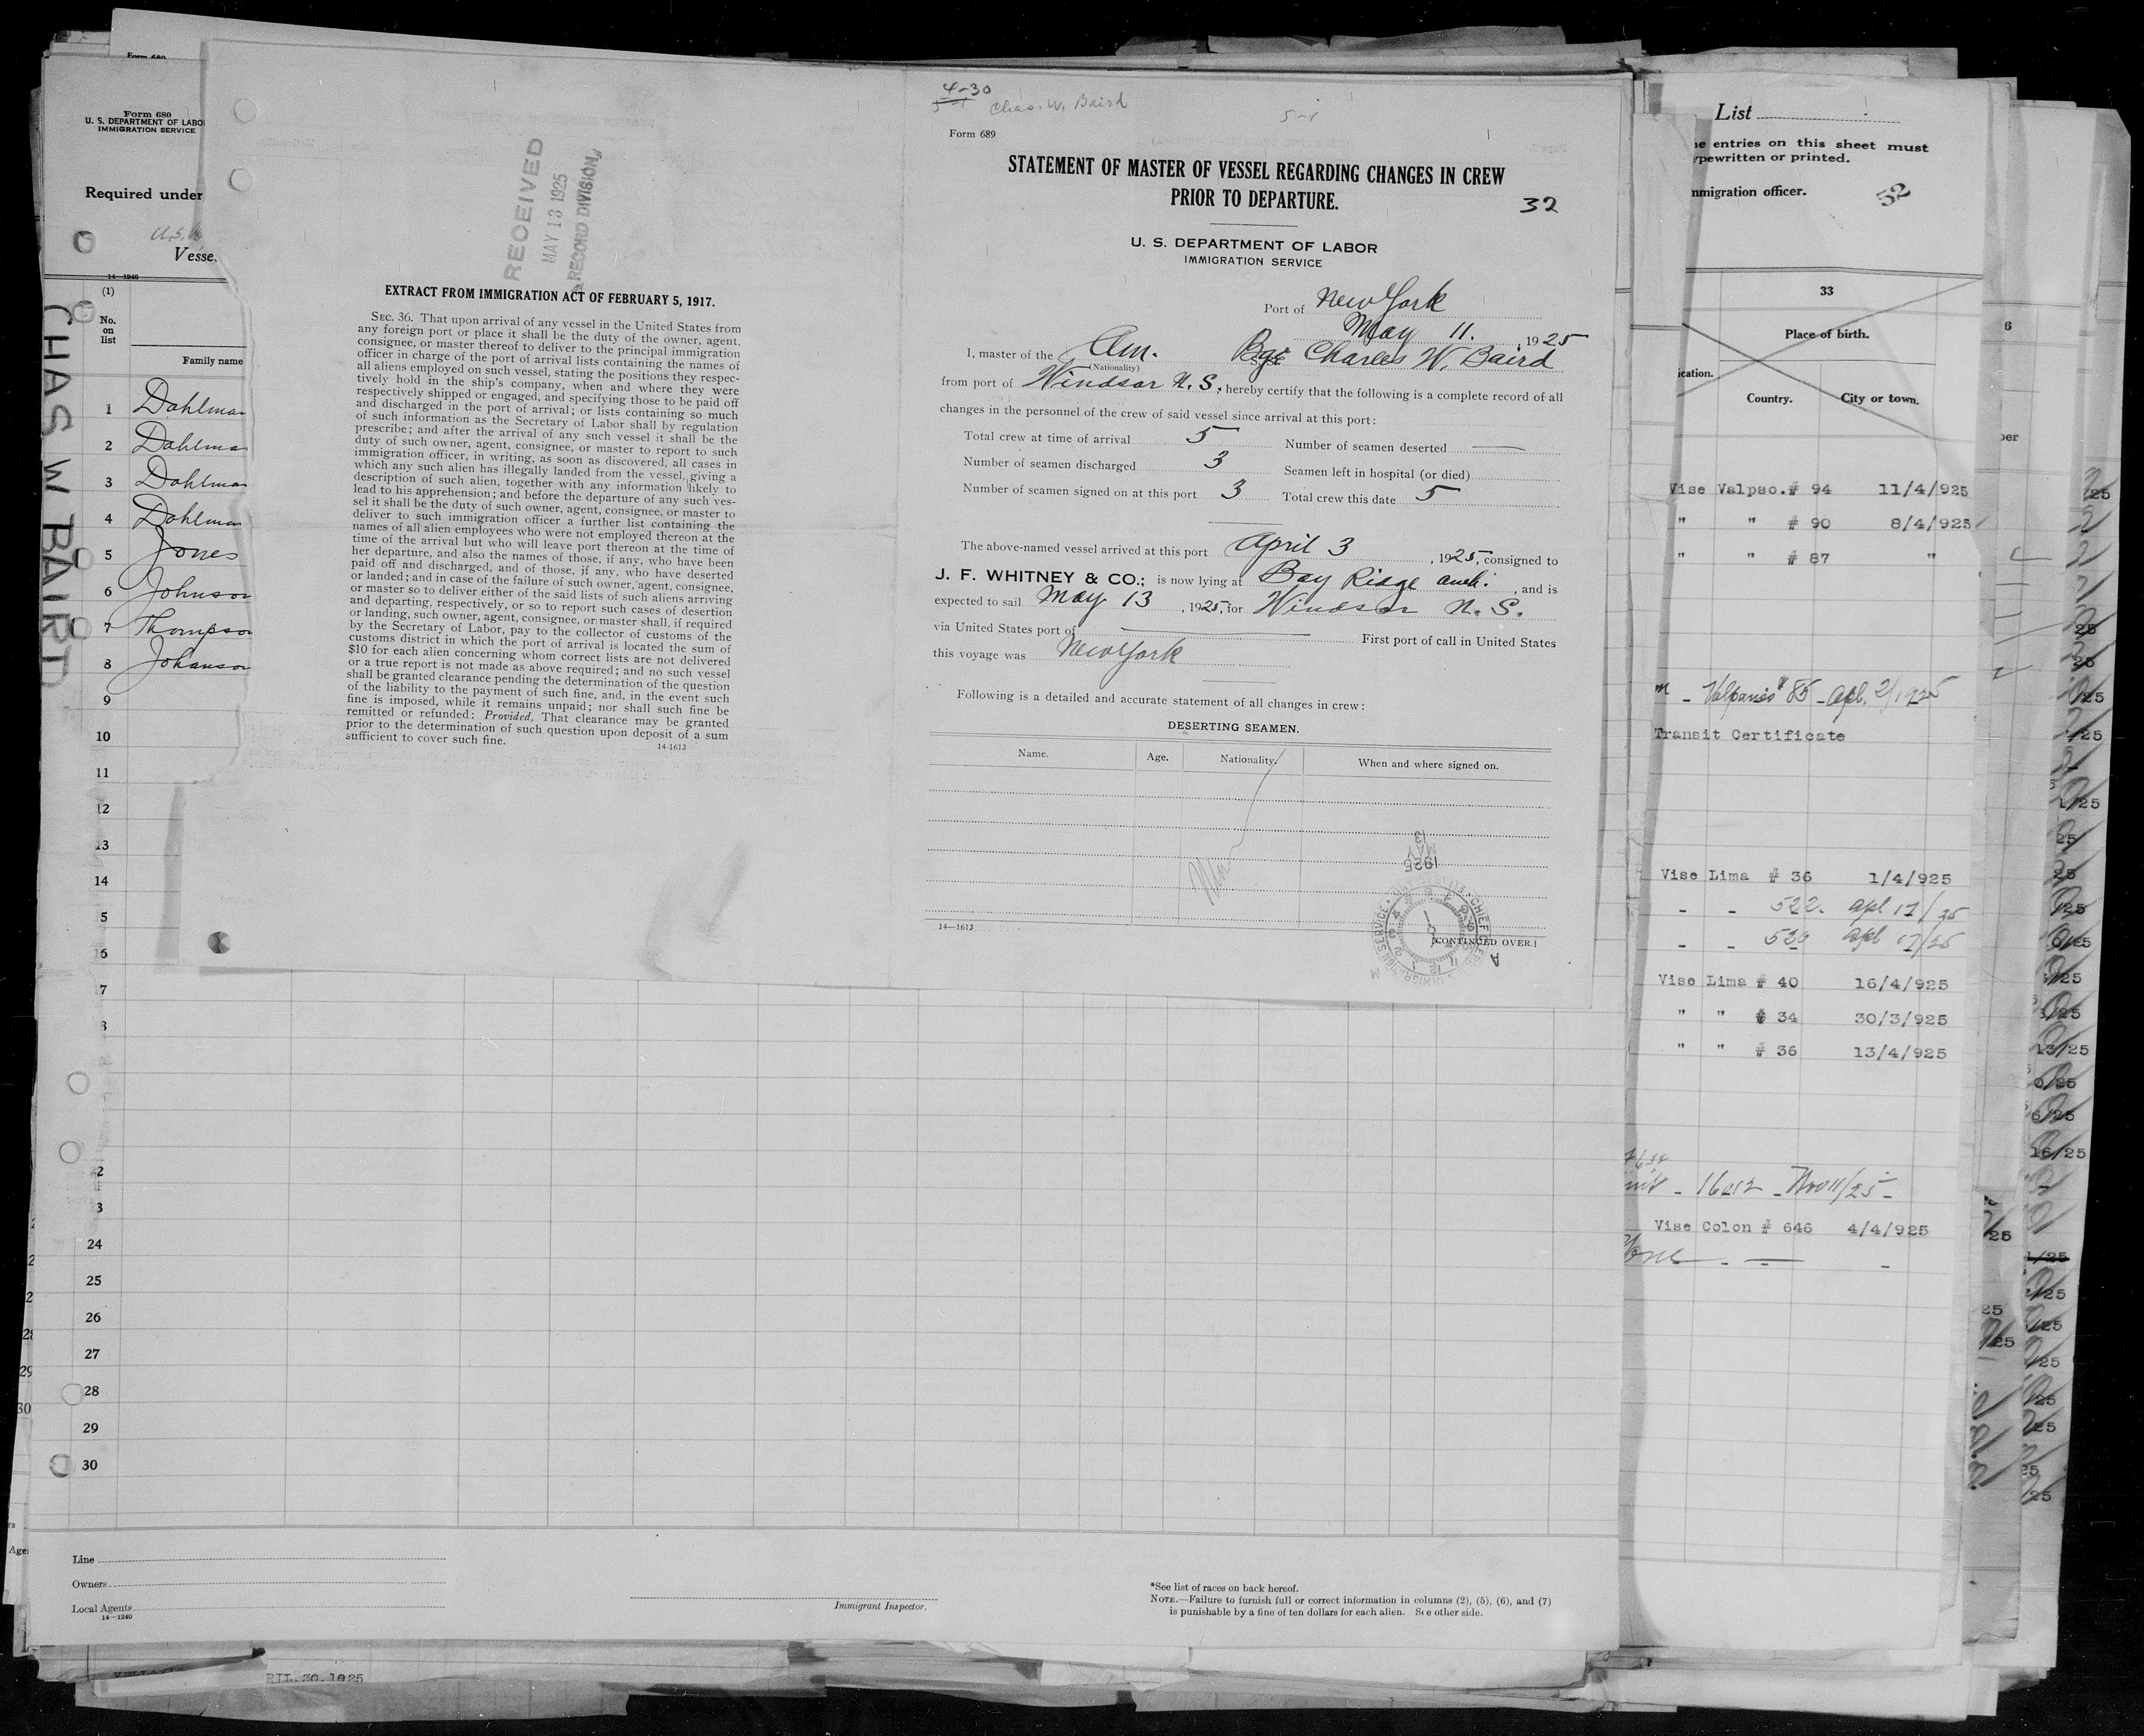 Form 680
Form 680
U. S. DEPARTMENT OF LABOR
IMMIGRATION SERVICE
Required under
U.S.
Vesse
14—1240
(1)
No.
on
list
Family name
CHAS W BAIRD
1 Dahlman
2 Dahlma
3 Dahlman
4 Dahlman
5 Jones
6 Johnson
7 Thompson
8 Johanson
9
10
11
12
13
14
5
16
7
8
2
3
24
25
26
27
28
29
30
Line
Owners
Local Agents
14—1240
Immigrant Inspector.
*See list of races on back hereof.
NOTE.—Failure to furnish full or correct information in columns (2), (5), (6), and (7)
is punishable by a fine of ten dollars for each alien. See other side.
RIL.30.1925
RECEIVED
MAY 13 1925
RECORD DIVISION
EXTRACT FROM IMMIGRATION ACT OF FEBRUARY 5, 1917.
SEC. 36. That upon arrival of any vessel in the United States from
any foreign port or place it shall be the duty of the owner, agent,
consignee, or master thereof to deliver to the principal immigration
officer in charge of the port of arrival lists containing the names of
all aliens employed on such vessel, stating the positions they respec-
tively hold in the ship's company, when and where they were
respectively shipped or engaged, and specifying those to be paid off
and discharged in the port of arrival; or lists containing so much
of such information as the Secretary of Labor shall by regulation
prescribe; and after the arrival of any such vessel it shall be the
duty of such owner, agent, consignee, or master to report to such
immigration officer, in writing, as soon as discovered, all cases in
which any such alien has illegally landed from the vessel, giving a
description of such alien, together with any information likely to
lead to his apprehension; and before the departure of any such ves-
sel it shall be the duty of such owner, agent, consignee, or master to
deliver to such immigration officer a further list containing the
names of all alien employees who were not employed thereon at the
time of the arrival but who will leave port thereon at the time of
her departure, and also the names of those, if any, who have been
paid off and discharged, and of those, if any, who have deserted
or landed; and in case of the failure of such owner, agent, consignee,
or master so to deliver either of the said lists of such aliens arriving
and departing, respectively, or so to report such cases of desertion
or landing, such owner, agent, consignee, or master shall, if required
by the Secretary of Labor, pay to the collector of customs of the
customs district in which the port of arrival is located the sum of
$10 for each alien concerning whom correct lists are not delivered
or a true report is not made as above required; and no such vessel
shall be granted clearance pending the determination of the question
of the liability to the payment of such fine, and, in the event such
fine is imposed, while it remains unpaid; nor shall such fine be
remitted or refunded: Provided, That clearance may be granted
prior to the determination of such question upon deposit of a sum
sufficient to cover such fine.
14-1613
4-30
Chas. W. Baird
Form 689
STATEMENT OF MASTER OF VESSEL REGARDING CHANGES IN CREW
PRIOR TO DEPARTURE.
32
U. S. DEPARTMENT OF LABOR
IMMIGRATION SERVICE
Port of New York
May 11. , 1925
I, master of the Am. Bge Charles W. Baird
(Nationality)
from port of Windsor N. S., hereby certify that the following is a complete record of all
changes in the personnel of the crew of said vessel since arrival at this port:
Total crew at time of arrival 5 Number of seamen deserted —
Number of seamen discharged 3 Seamen left in hospital (or died)
Number of seamen signed on at this port 3 Total crew this date 5
The above-named vessel arrived at this port April 3 , 1925, consigned to
J. F. WHITNEY & CO.; is now lying at Bay Ridge anch. , and is
expected to sail May 13 , 1925, for Windsor N. S.
via United States port of — First port of call in United States
this voyage was New York
Following is a detailed and accurate statement of all changes in crew:
DESERTING SEAMEN.
Name. Age. Nationality. When and where signed on.
1925
MAY
13
14—1613
[CONTINUED OVER.]
List
e entries on this sheet must
ypewritten or printed.
mmigration officer.
52
33
Place of birth.
ication.
Country. City or town.
Vise Valpso.# 94 11/4/925
" " # 90 8/4/925
" " # 87 "
Transit Certificate
Vise Lima # 36 1/4/925
- - 522. apl 17/25
- - 520 apl 17/25
Vise Lima # 40 16/4/925
" " # 34 30/3/925
" " # 36 13/4/925
Vise Colon # 646 4/4/925
None - — -
6